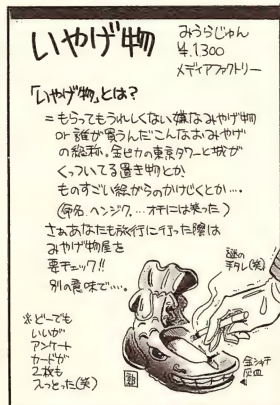 いやげ物
みうらじゅん
¥.1300
メディアファクトリー
「いやげ物」とは?
=もらってもうれしくない嫌なみやげ物
or 誰が買うんだこんなおみやげ
の総称。金ピカの東京タワーと城が
くっついてる置き物とか
ものすごい絵がらのかけじくとか…。
(命名、ヘンジク、…オチには笑った)
さぁあなたも旅行に行った際は
みやげ物屋を
要チェック!!
別の意味で…。
謎の
手タレ(笑)
※どーでも
いいが
アンケート
カードが
2枚も
入っとった(笑)
金シャチ
灰皿